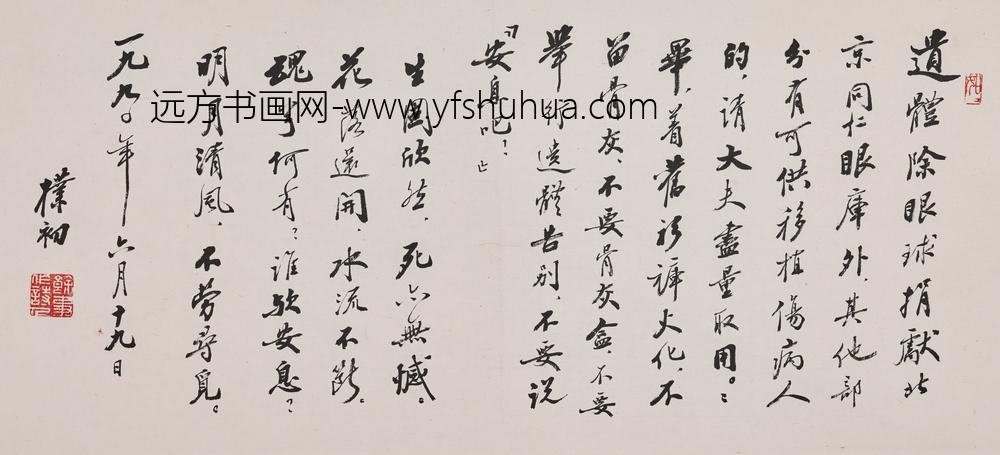 遺體除眼球捐獻北
京同仁眼庫外,其他部
分有可供移植傷病人
的,請大夫盡量取用。
畢,着舊衫褲火化,不
留骨灰,不要骨灰盒,不要
舉行遺體告別,不要说
「安息吧」
生固欣然,死亦無憾。
花落還開,水流不断。
魂兮何有?誰歟安息?
明月清風,不勞尋覓。
一九九〇年六月十九日
樸初
远方书画网-www.yfshuhua.com